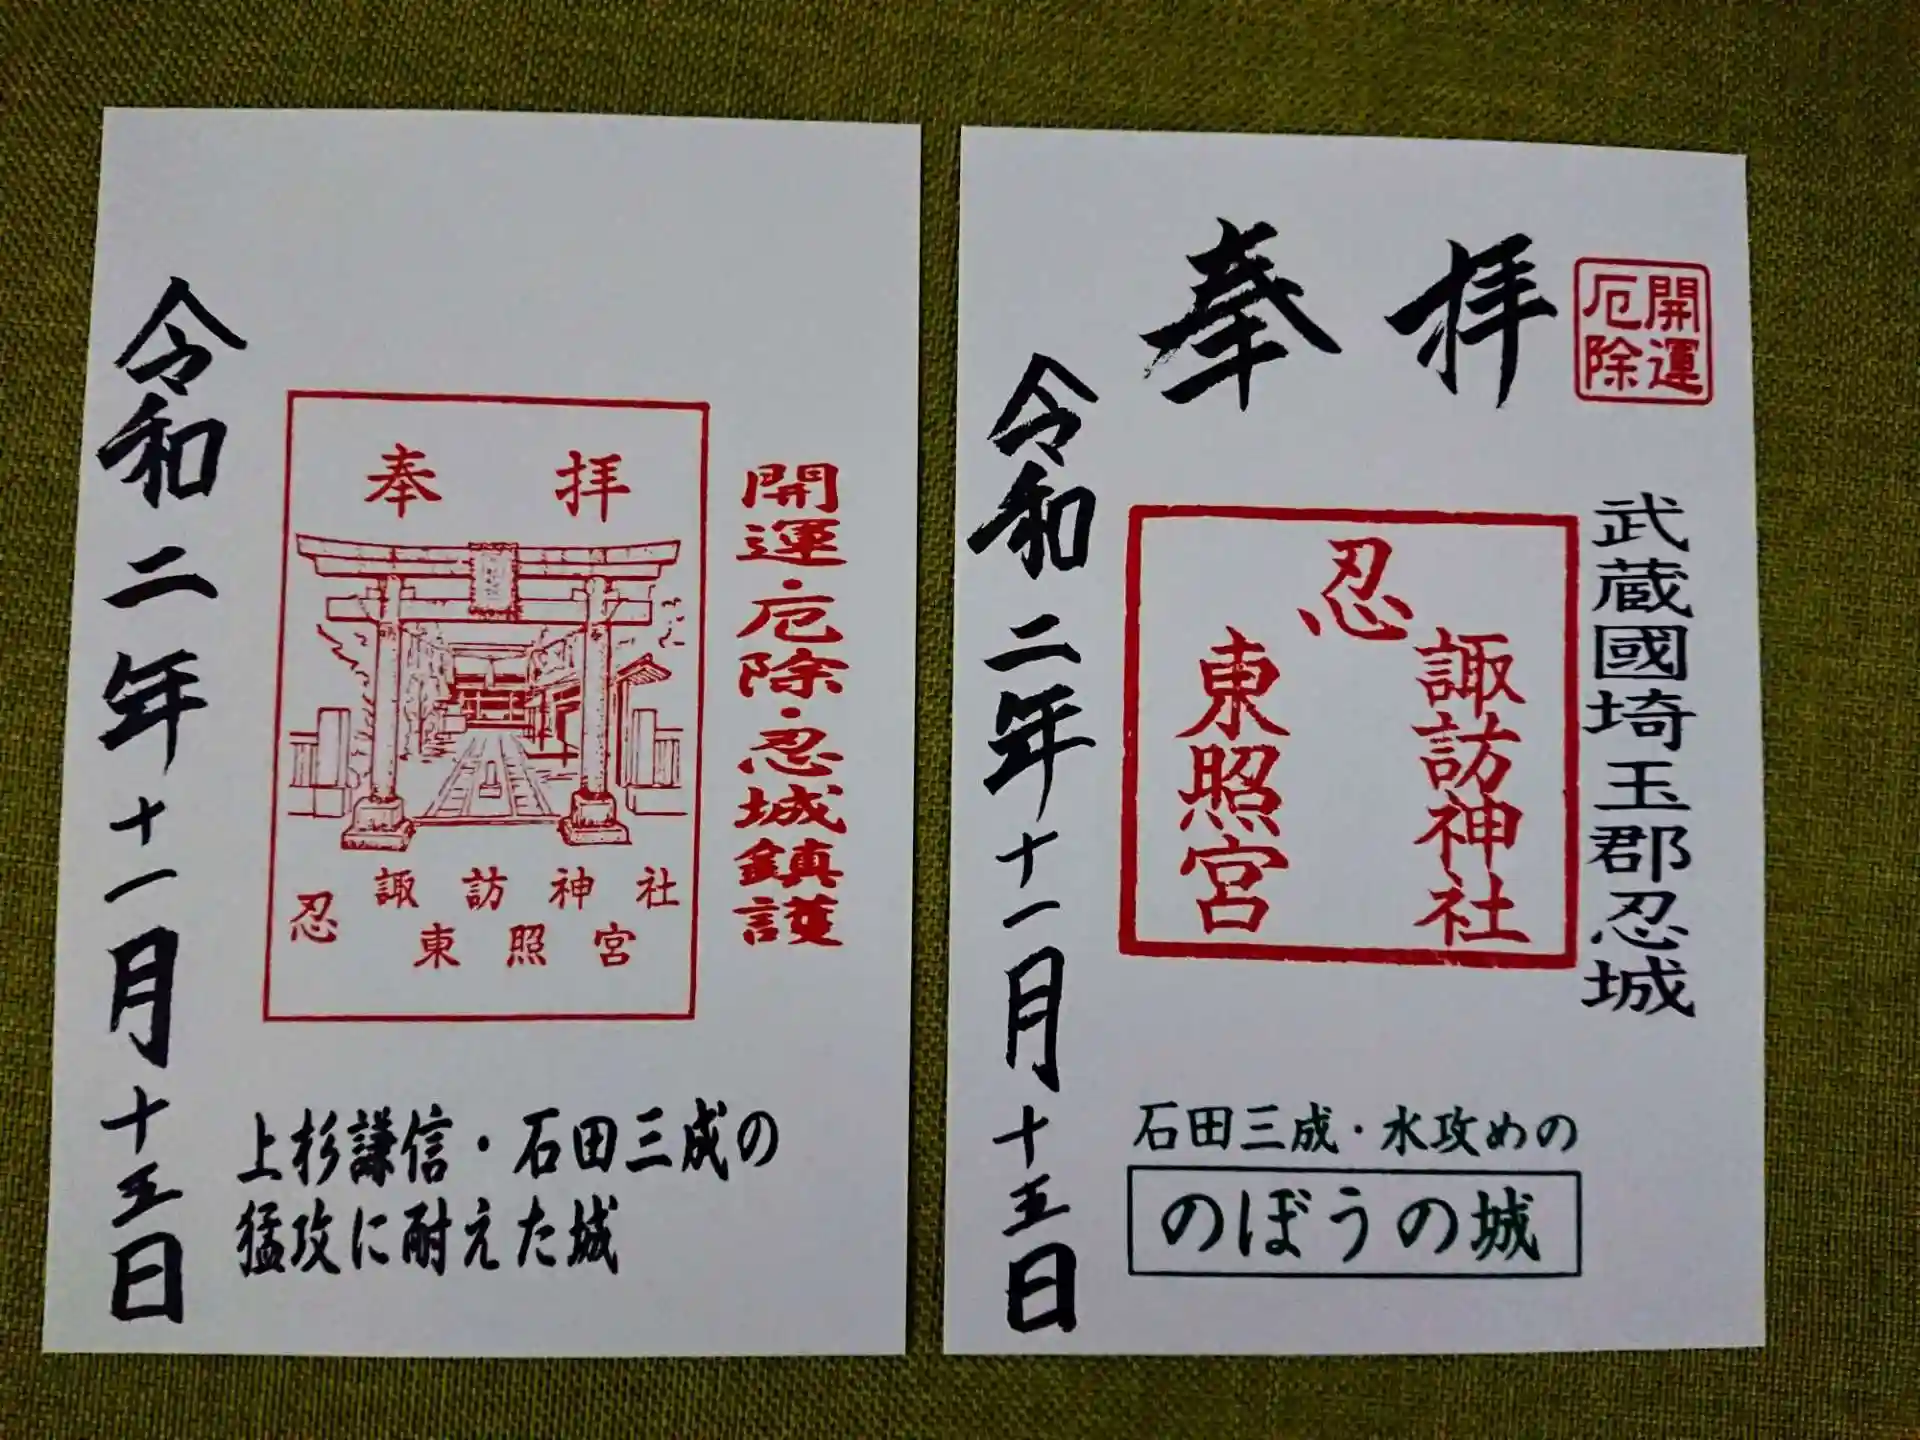 開運・厄除・忍城鎮護
奉拝
諏訪神社
忍
東照宮
上杉謙信・石田三成の
猛攻に耐えた城
令和二年十一月十五日
開運
厄除
奉拝
武蔵國埼玉郡忍城
忍
諏訪神社
東照宮
石田三成・水攻めの
のぼうの城
令和二年十一月十五日